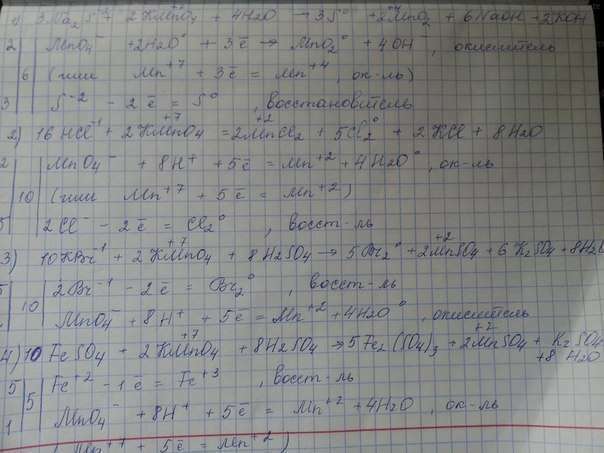 1) 3Na2S⁻² + 2KMnO4 + 4H2O → 3S⁰ + 2MnO2 + 6NaOH + 2KOH
2 | MnO4⁻ + 2H2O⁰ + 3ē → MnO2⁰ + 4OH , окислитель
6 | (или Mn⁺⁷ + 3ē = Mn⁺⁴, ок-ль)
3 | S⁻² - 2ē = S⁰ , восстановитель
2) 16HCl⁻¹ + 2KMnO4⁺⁷ = 2MnCl2⁺² + 5Cl2⁰ + 2KCl + 8H2O
2 | MnO4⁻ + 8H⁺ + 5ē = Mn⁺² + 4H2O⁰ , ок-ль
10 | (или Mn⁺⁷ + 5ē = Mn⁺²)
5 | 2Cl⁻ - 2ē = Cl2⁰ , восст-ль
3) 10KBr⁻¹ + 2KMnO4⁺⁷ + 8H2SO4 → 5Br2⁰ + 2MnSO4⁺² + 6K2SO4 + 8H2
5 | 10 | 2Br⁻¹ - 2ē = Br2⁰ , восст-ль
MnO4⁻ + 8H⁺ + 5ē = Mn⁺² + 4H2O⁰ , окислитель
4) 10FeSO4 + 2KMnO4⁺⁷ + 8H2SO4 → 5Fe2(SO4)3 + 2MnSO4⁺² + K2SO4
+ 8H2O
5 | 5 | Fe⁺² - 1ē = Fe⁺³ , восст-ль
1 | MnO4⁻ + 8H⁺ + 5ē = Mn⁺² + 4H2O , ок-ль
Mn⁺⁷ + 5ē = Mn⁺²)